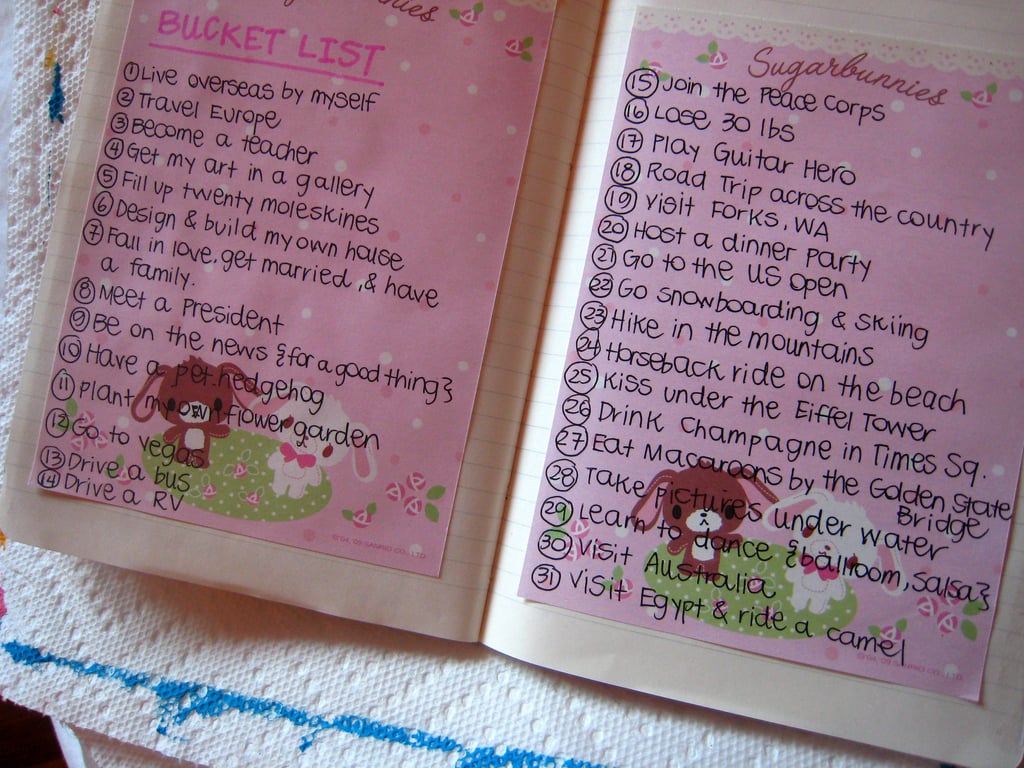 BUCKET LIST
① Live overseas by myself
② Travel Europe
③ Become a teacher
④ Get my art in a gallery
⑤ Fill up twenty moleskines
⑥ Design & build my own house
⑦ Fall in love, get married, & have
a family.
⑧ Meet a President
⑨ Be on the news {for a good thing}
⑩ Have a pet hedgehog
⑪ Plant my own flower garden
⑫ Go to vegas
⑬ Drive a bus
⑭ Drive a RV
©'04,'09 SANRIO CO., LTD.
Sugarbunnies
⑮ Join the Peace Corps
⑯ Lose 30 lbs
⑰ Play Guitar Hero
⑱ Road Trip across the country
⑲ Visit Forks, WA
⑳ Host a dinner party
㉑ Go to the US open
㉒ Go snowboarding & skiing
㉓ Hike in the mountains
㉔ Horseback ride on the beach
㉕ Kiss under the Eiffel Tower
㉖ Drink Champagne in Times Sq.
㉗ Eat Macaroons by the Golden State
Bridge
㉘ Take pictures under water
㉙ Learn to dance {ballroom, salsa}
㉚ Visit Australia
㉛ Visit Egypt & ride a camel
©'04,'09 SANRIO CO., LTD.